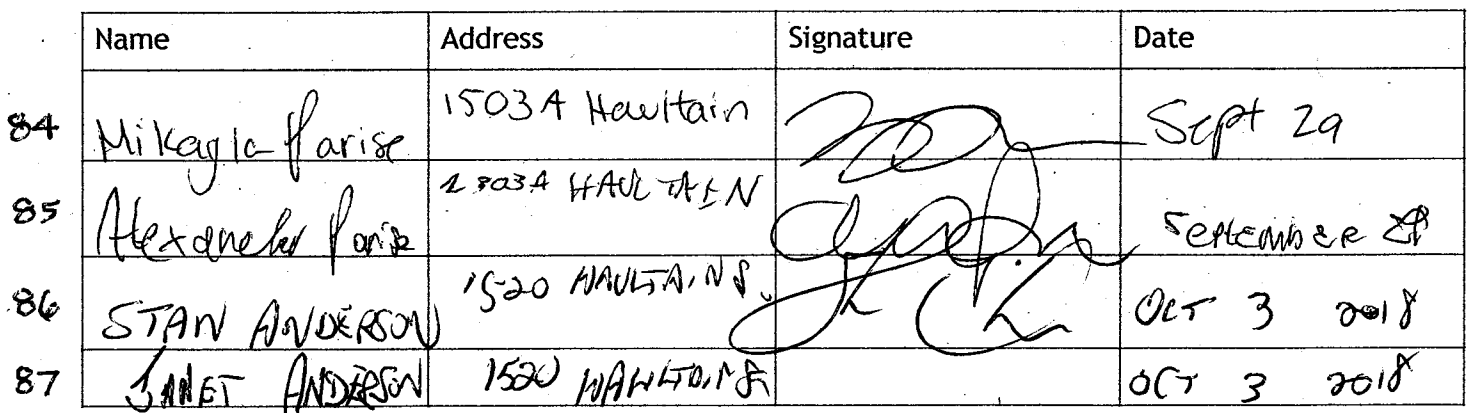 Name Address Signature Date
84 Mikayla Parise 1503A Haultain Sept 29
85 Alexander Parise 1503A HAULTAIN SEPTEMBER 29
86 STAN ANDERSON 1520 HAULTAIN S. OCT 3 2018
87 JANET ANDERSON 1520 HAULTAIN S. OCT 3 2018